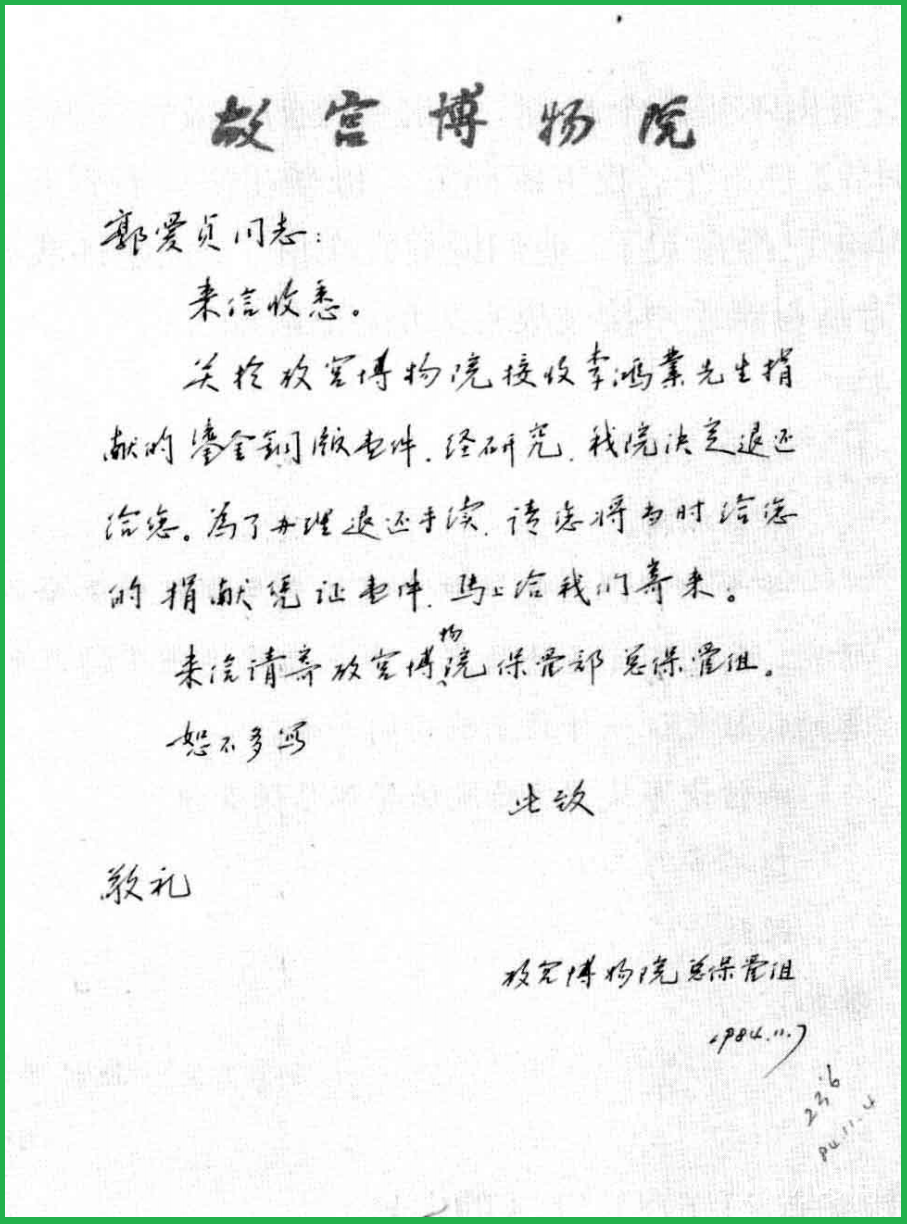 故宫博物院
郭爱贞同志：
来信收悉。
关于故宫博物院接收李鸿業先生捐
献的鎏金銅版壹件，经研究，我院决定退还
给您。為了办理退还手续，请您将当时给您
的捐献凭证壹件，马上给我们寄来。
来信请寄故宫博物院保管部总保管组。
恕不多写
此致
敬礼
故宫博物院总保管组
1984.11.7
84.11.4